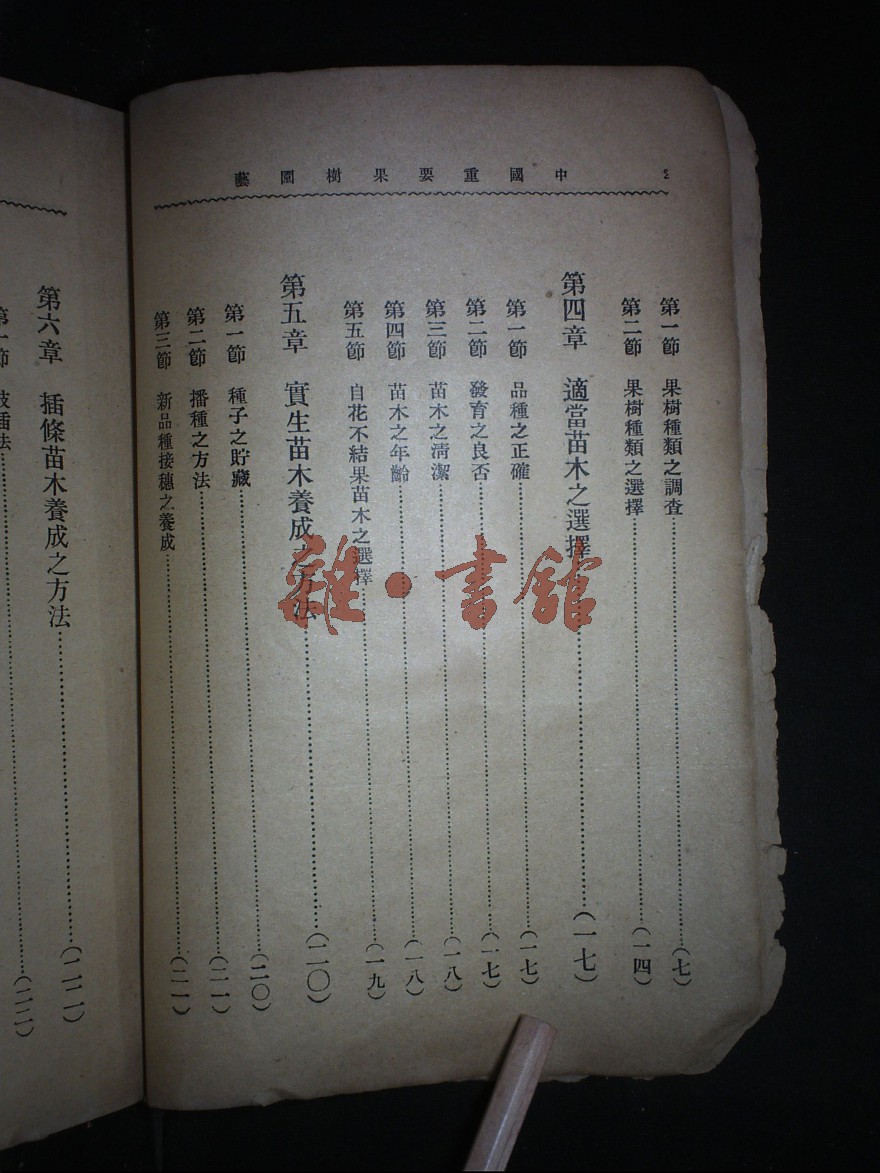 中國重要果樹園藝
2
第一節 果樹種類之調查(七)
第二節 果樹種類之選擇(一四)
第四章 適當苗木之選擇(一七)
第一節 品種之正確(一七)
第二節 發育之良否(一七)
第三節 苗木之清潔(一八)
第四節 苗木之年齡(一八)
第五節 自花不結果苗木之選擇(一九)
第五章 實生苗木養成之方法(二〇)
第一節 種子之貯藏(二〇)
第二節 播種之方法(二一)
第三節 新品種接穗之養成(二一)
第六章 插條苗木養成之方法(二二)
第一節 枝插法(二二)
雜·書館